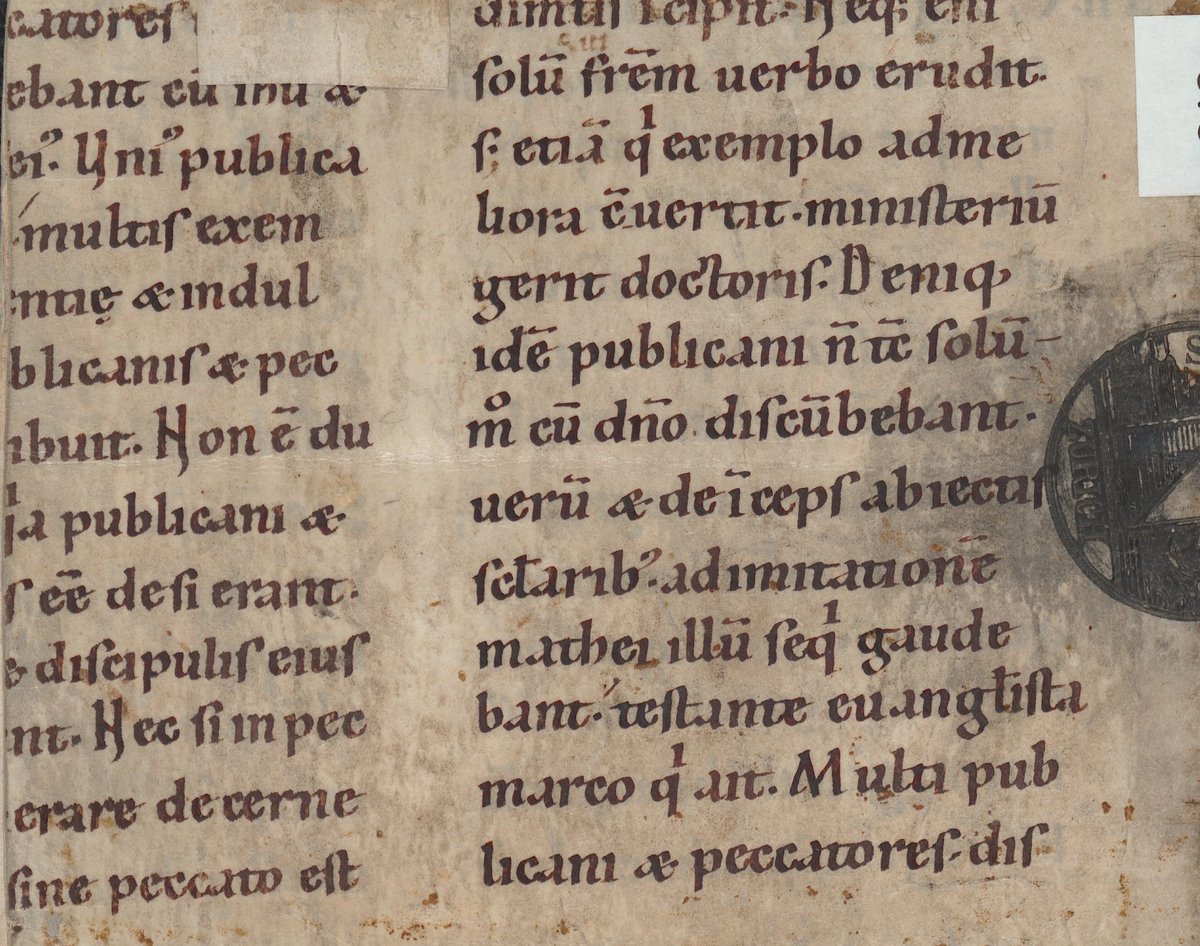 catores
ebant cū ihu &
ei᾽. Uni᾽ publica
multis exem
ntię & indul
blicanis & pec
ibuit. Non ē du
ia publicani &
s eē desierant.
& discipulis eius
nt. Nec si in pec
erare decerne
sine peccato est
dimtis icipit. Neq; eni
sui
solū frēm uerbo erudit.
s; etiā qⁱ exemplo adme
liora c̄uertit. ministeriū
gerit doctoris. Deniq
idē publicani n̄ tc̄ solū
mº cū dn̄o discūbebant.
uerū & deīceps abiectis
scƚarib᾽. ad imitationē
mathei illū seqⁱ gaude
bant. testante euangƚista
marco qⁱ ait. Multi pub
licani & peccatores. dis